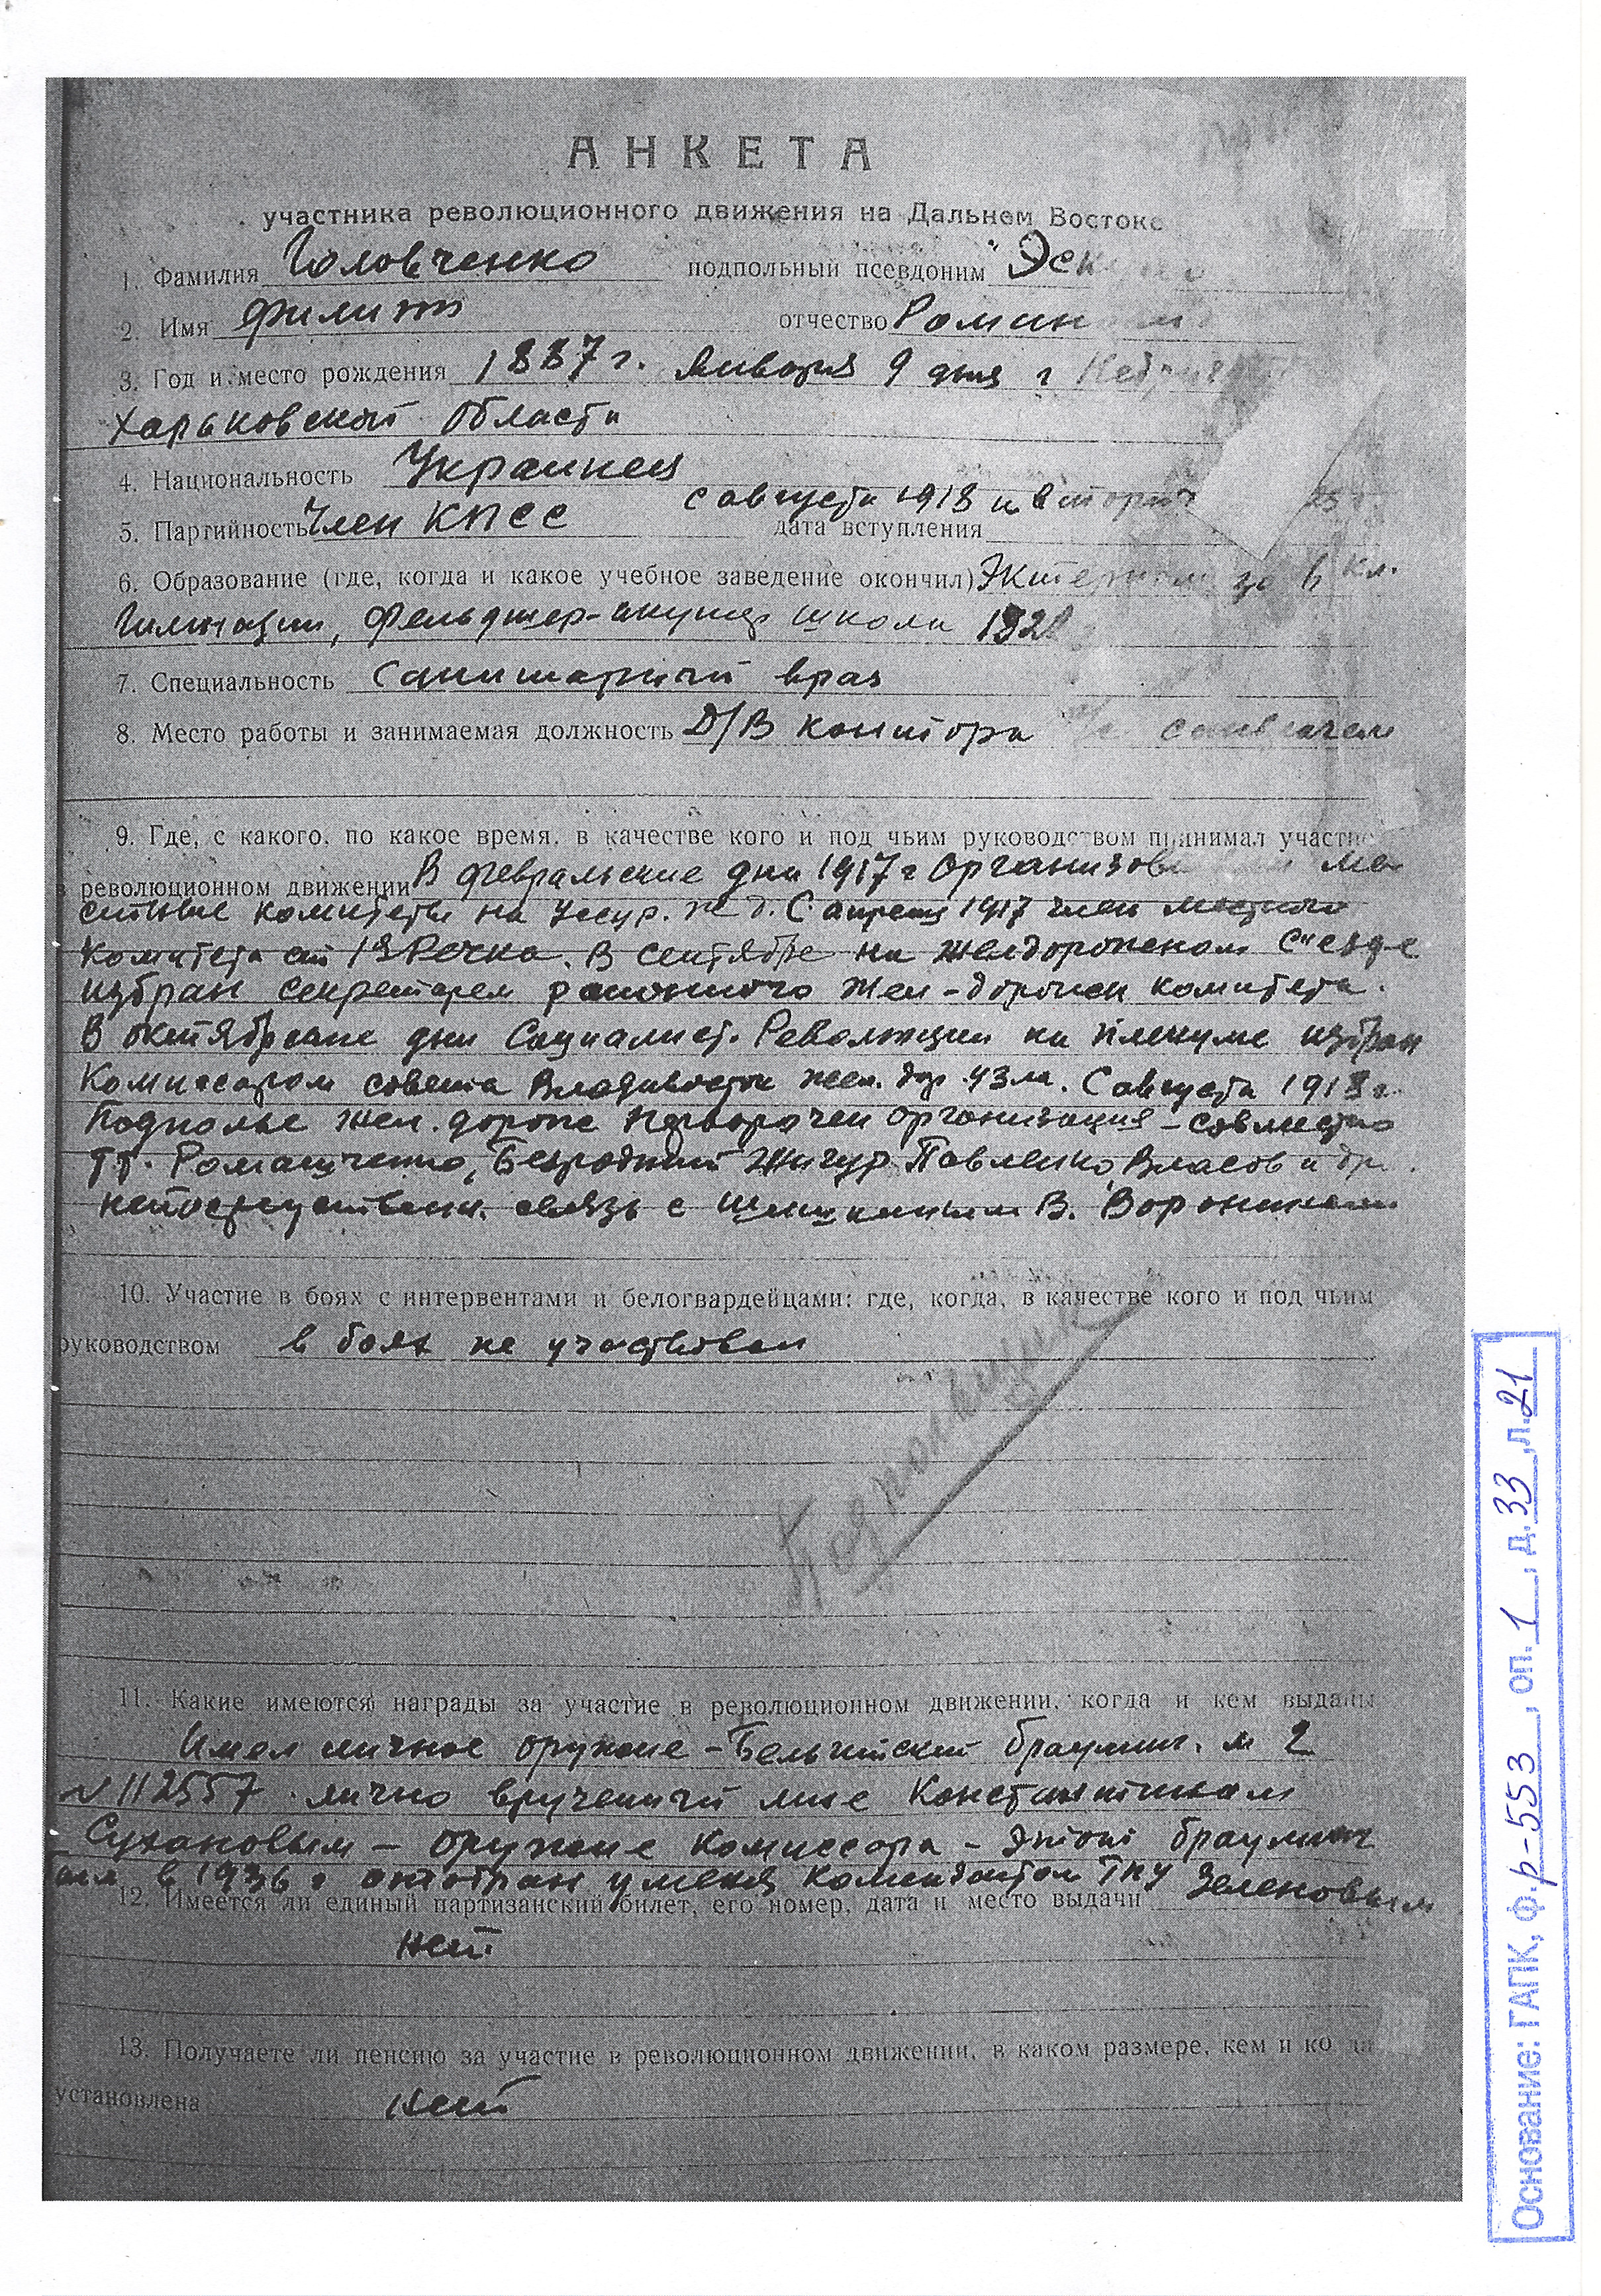 АНКЕТА
участника революционного движения на Дальнем Востоке
1. Фамилия Головченко подпольный псевдоним "Эск
2. Имя Филипп отчество Роман
3. Год и место рождения 1887 г. Января 9 дня г
Харьковской области
4. Национальность Украинец
с августа 1918 и вторич
5. Партийность Член КПСС дата вступления
6. Образование (где, когда и какое учебное заведение окончил) Экстерном за 6 кл.
Гимназии, Фельдшер-акушер школа
7. Специальность Санитарный врач
8. Место работы и занимаемая должность Д/В контора санврачем
9. Где, с какого, по какое время, в качестве кого и под чьим руководством принимал участие
в революционном движении В февральские дни 1917 г Организов
стные комитеты на Уссур. же д. С апреля 1917 член местного
комитета ст 1я Речка. В сентябре на желдорожном съезде
избран секретарем районного жел-дорожн комитета.
В октябрьские дни Социалист. Революции на пленуме избран
Комиссаром совета Владивосток жел. дор. С августа 1918 г.
Подполье жел. дорожн Перворечен организация - совместно
тт. Романченко, Безродный Жигур Павленко, Власов и др.
непосредственн. связь с Шишкиным В. Ворониным
10. Участие в боях с интервентами и белогвардейцами: где, когда, в качестве кого и под чьим
руководством в боях не участвовал
Подпольщик
11. Какие имеются награды за участие в революционном движении, когда и кем выданы
Имел личное оружие - Бельгийский браунинг. м 2
№ 112557 лично врученный мне Константином
Сухановым - оружие комиссара - этот браунинг
был в 1936 г отобран у меня комендантом ГПУ Зеленовым
12. Имеется ли единый партизанский билет, его номер, дата и место выдачи
нет.
13. Получаете ли пенсию за участие в революционном движении, в каком размере, кем и когда
установлена нет
Основание: ГАПК, ф. р-553, оп. 1, д. 33, л. 21